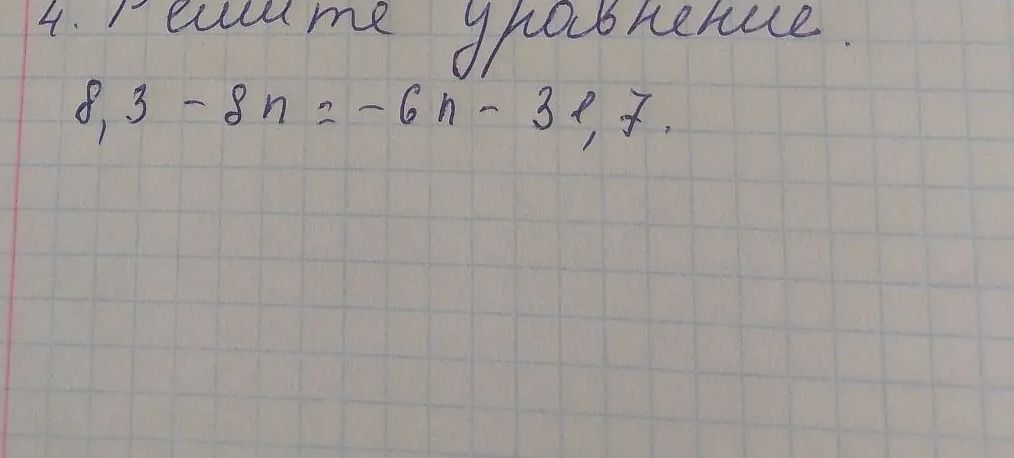 4. Решите уравнение.
8,3 - 8n = -6n - 31,7.